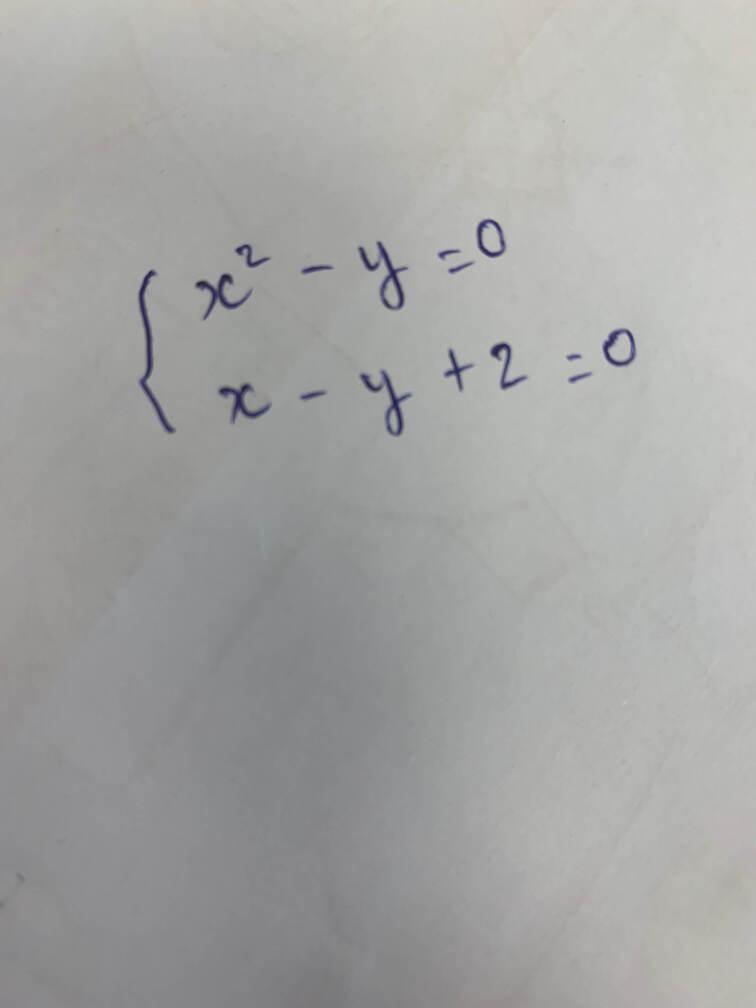 x² - y = 0
x - y + 2 = 0